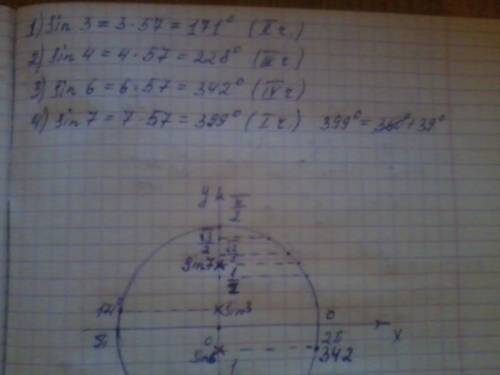 1) Sin 3 = 3·57 = 171° (II ч.)
2) Sin 4 = 4·57 = 228° (III ч)
3) Sin 6 = 6·57 = 342° (IV ч)
4) Sin 7 = 7·57 = 399° (I ч.) 399° = 360° + 39°
y π/2
√3/2 √2/2
Sin7
1/2
171 Sin3 0
π 0 2π x
Sin6 342
1